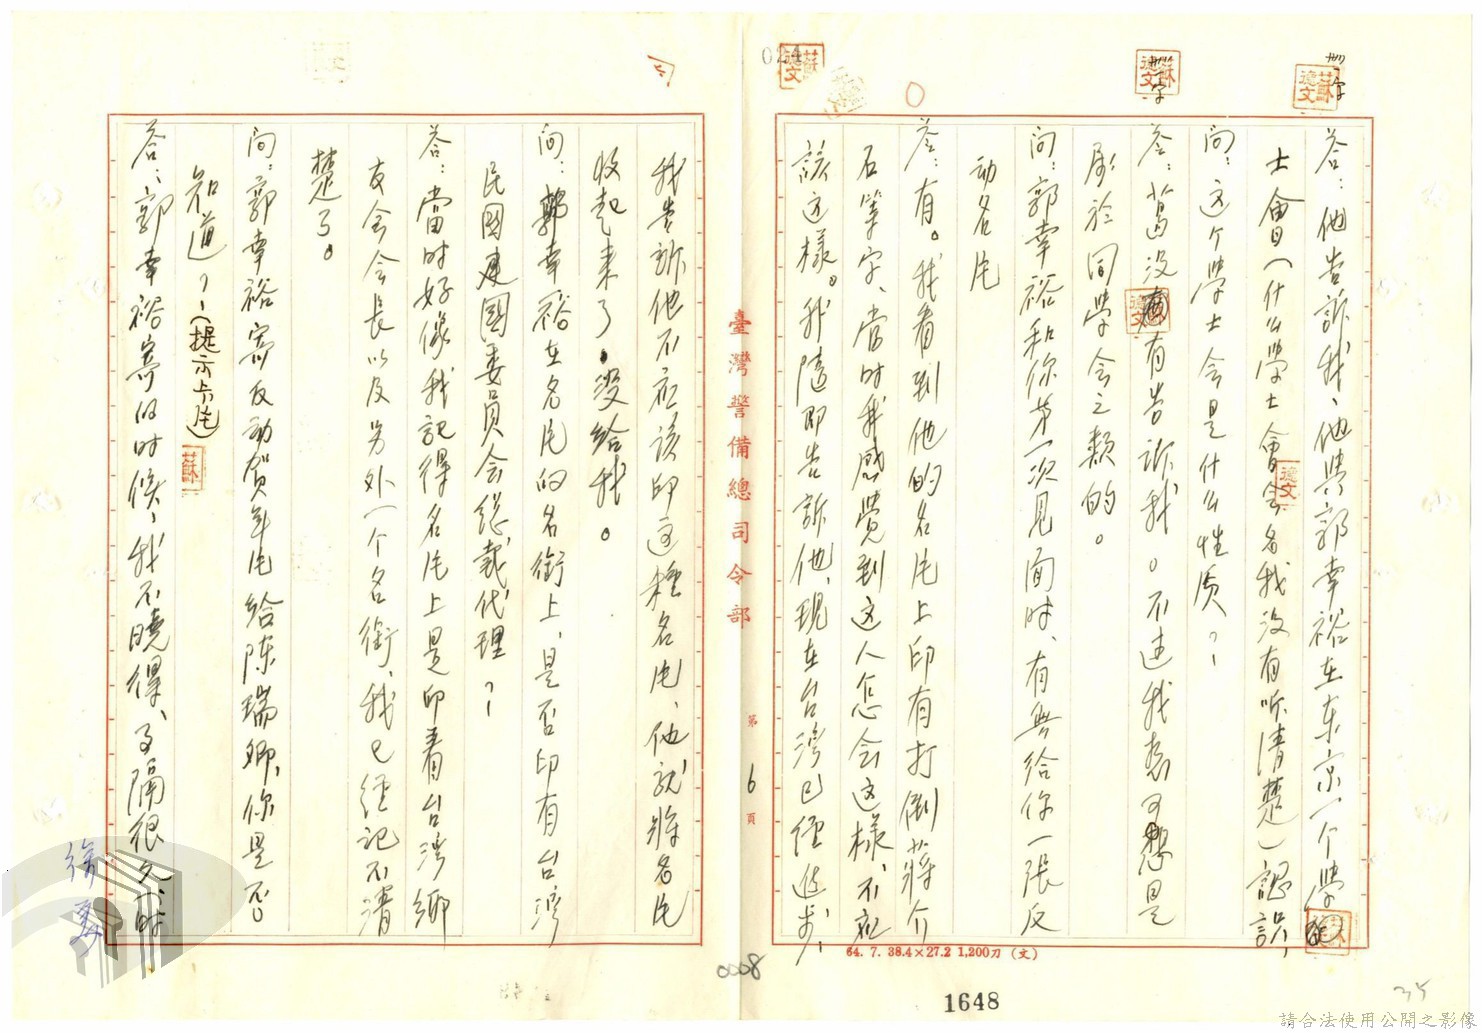 答：他告訴我、他與郭幸裕在东京一个學
士會（什么學士會會名我没有听清楚）認識
问：这个學士会是什么性质？
答：葛没有告訴我。不过我想可想是
屬於同學会之類的。
问：郭幸裕和你第一次見面时、有無給你一張反
动名片
答：有。我看到他的名片上印有打倒蔣介
石等字、當时我感覺到这人怎会这樣、不应
該这樣。我隨即告訴他、現在台灣已經進步、
我告訴他不应該印这種名片、他就將名片
收起来了，没給我。
问：郭幸裕在名片的名銜上、是否印有台湾
民國建國委員会總裁代理？
答：當时好像我記得名片上是印着台湾鄉
友会会長以及另外一个名銜、我已经記不清
楚了。
问：郭幸裕寄反动贺年片给陈瑞卿、你是否
知道？（提示卡片）
答：郭幸裕寄的时候、我不曉得、了隔很久、时
臺灣警備總司令部
第6頁
64. 7. 38.4×27.2 1,200刀（文）
0008
1648
35
請合法使用公開之影像